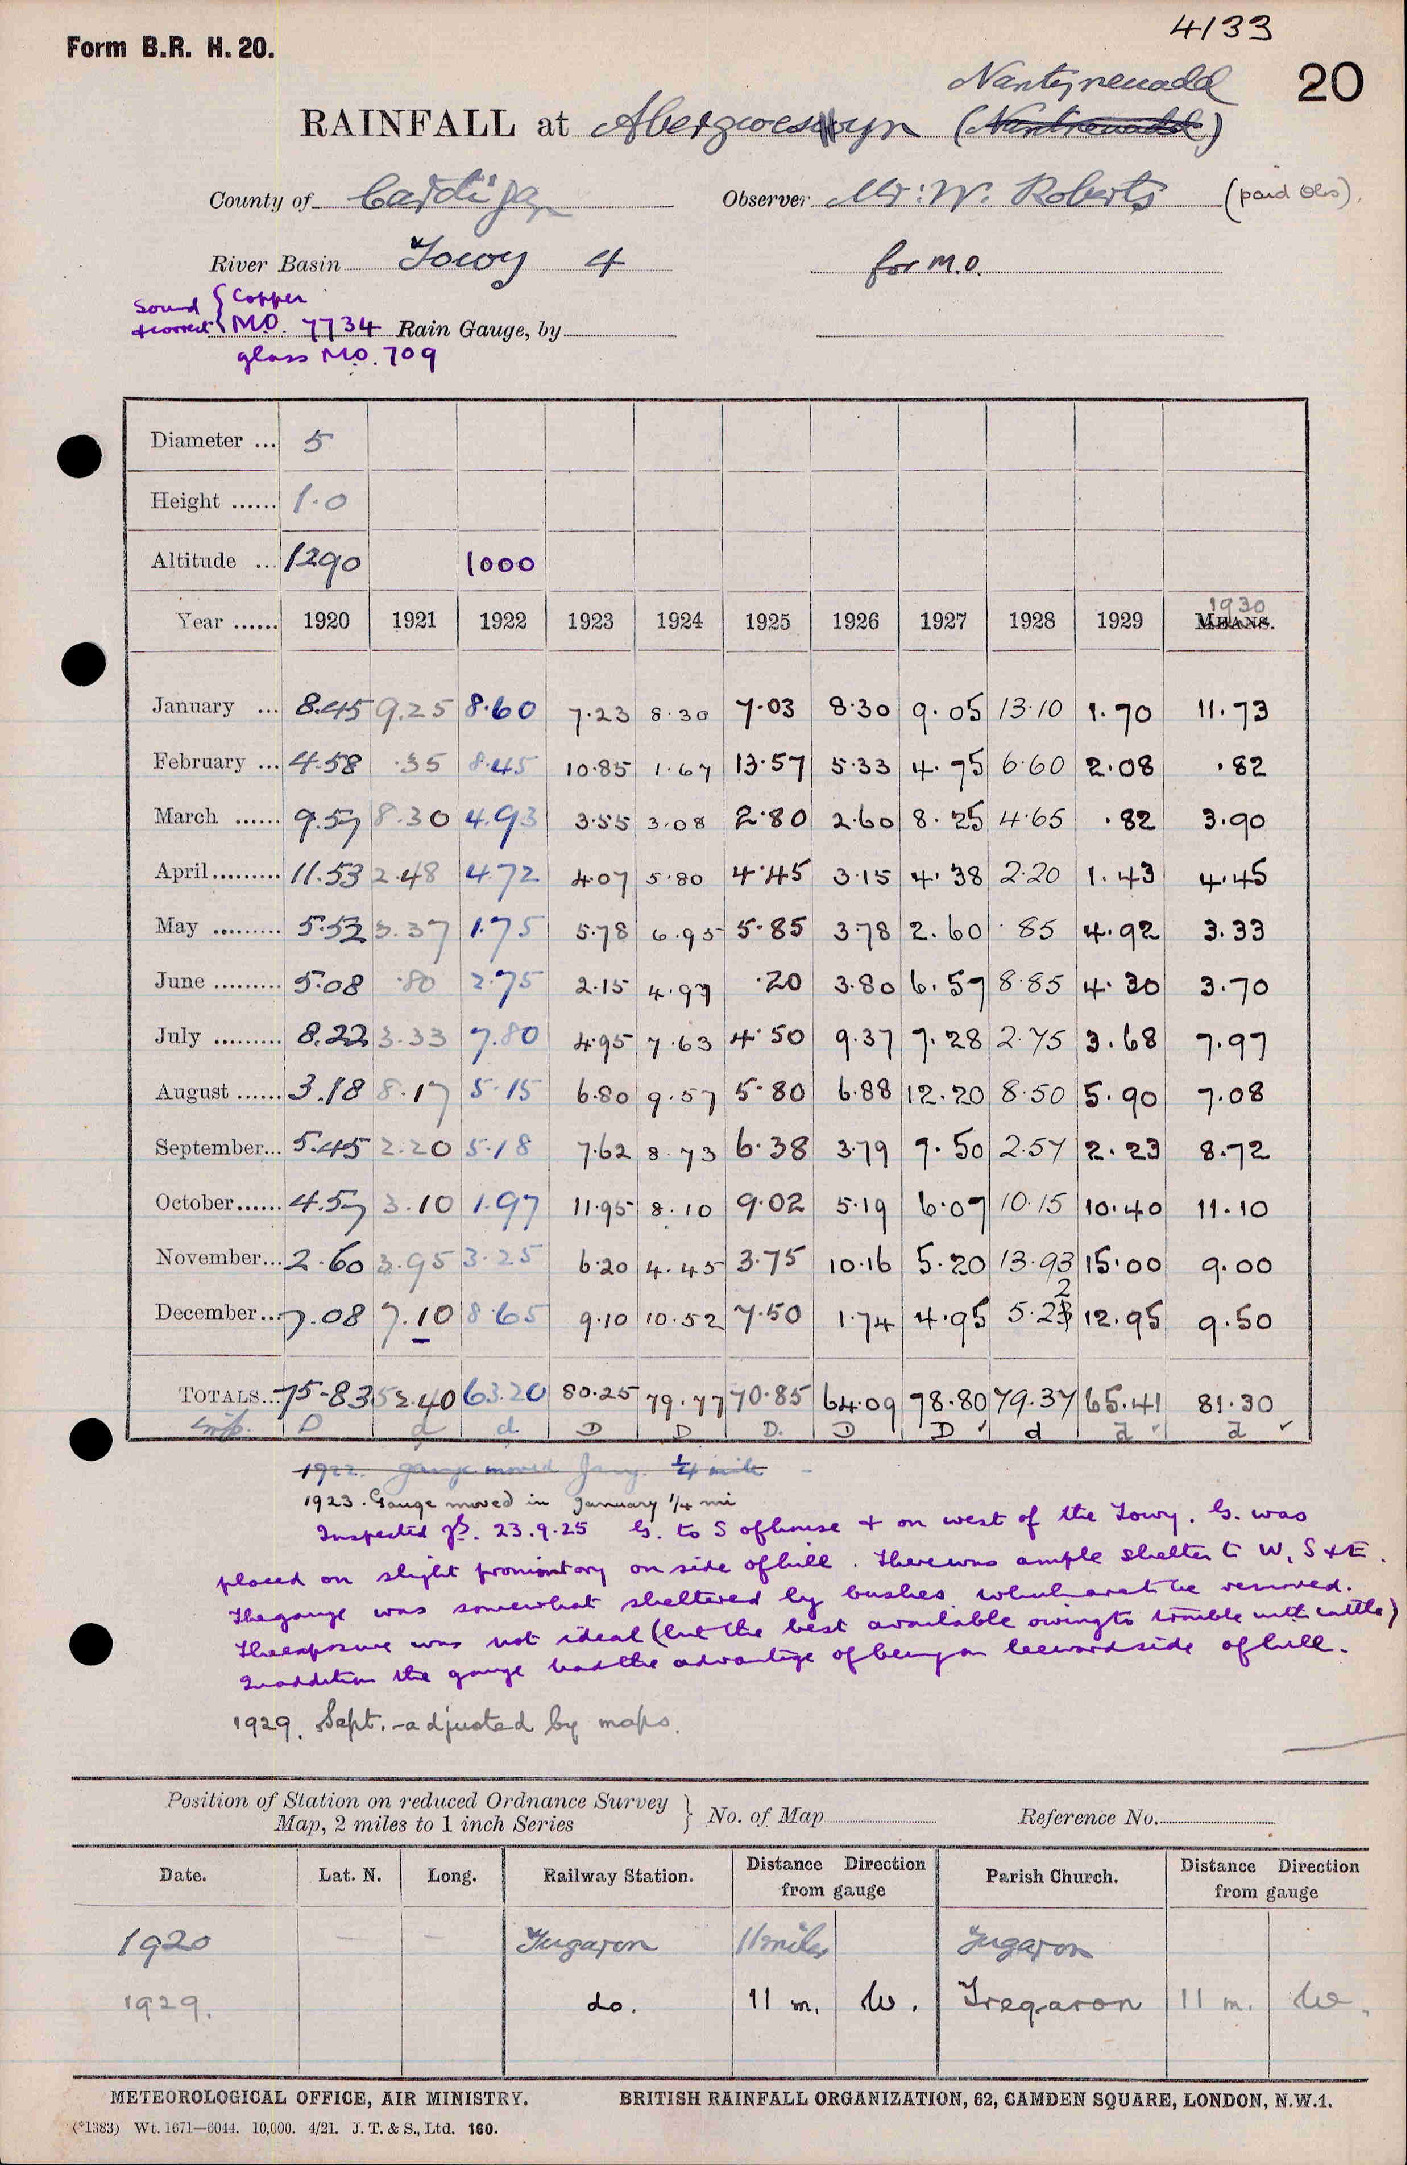 4133
Form B.R. H. 20.
20
Nantyrneuadd
RAINFALL at Abergwesyn (Nantrneuadd)
County of Cardigan Observer Mr: W. Roberts (paid Obs).
River Basin Towy 4 for M.O.
Sound & correct { Copper
M.O. 7734 Rain Gauge, by
glass M.O. 709
Diameter ... 5
Height ...... 1.0
Altitude ... 1290 1000
1930
Year ...... 1920 1921 1922 1923 1924 1925 1926 1927 1928 1929 MEANS.
January ... 8.45 9.25 8.60 7.23 8.30 7.03 8.30 9.05 13.10 1.70 11.73
February ... 4.58 .35 8.45 10.85 1.67 13.57 5.33 4.75 6.60 2.08 .82
March ...... 9.57 8.30 4.93 3.55 3.08 2.80 2.60 8.25 4.65 .82 3.90
April......... 11.53 2.48 4.72 4.07 5.80 4.45 3.15 4.38 2.20 1.43 4.45
May ......... 5.52 3.37 1.75 5.78 6.95 5.85 3.78 2.60 .85 4.92 3.33
June ......... 5.08 .80 2.75 2.15 4.97 .20 3.80 6.57 8.85 4.30 3.70
July ......... 8.22 3.33 7.80 4.95 7.63 4.50 9.37 7.28 2.75 3.68 7.97
August ...... 3.18 8.17 5.15 6.80 9.57 5.80 6.88 12.20 8.50 5.90 7.08
September... 5.45 2.20 5.18 7.62 8.73 6.38 3.79 7.50 2.57 2.23 8.72
October...... 4.57 3.10 1.97 11.95 8.10 9.02 5.19 6.07 10.15 10.40 11.10
November... 2.60 3.95 3.25 6.20 4.45 3.75 10.16 5.20 13.93 15.00 9.00
December... 7.08 7.10 8.65 9.10 10.52 7.50 1.74 4.95 5.22 12.95 9.50
TOTALS... 75.83 52.40 63.20 80.25 79.77 70.85 64.09 78.80 79.37 65.41 81.30
D d d. D D D. D D ✓ d d ✓ d ✓
1922. gauge moved Jany. ¼ mile
1923. Gauge moved in January ¼ mi
Inspected 23.9.25 G. to S of house & on west of the Towy. G. was
placed on slight promontory on side of hill. There was ample shelter to W, S & E.
The gauge was somewhat sheltered by bushes which are to be removed.
The exposure was not ideal (but the best available owing to trouble with cattle)
In addition the gauge had the advantage of being on leeward side of hill.
1929. Sept. - adjusted by maps.
Position of Station on reduced Ordnance Survey
Map, 2 miles to 1 inch Series } No. of Map Reference No.
Date. Lat. N. Long. Railway Station. Distance Direction from gauge Parish Church. Distance Direction from gauge
1920 — — Tregaron 11 miles Tregaron
1929. do. 11 m. W. Tregaron 11 m. W.
METEOROLOGICAL OFFICE, AIR MINISTRY. BRITISH RAINFALL ORGANIZATION, 62, CAMDEN SQUARE, LONDON, N.W.1.
(*1383) Wt. 1671—6044. 10,000. 4/21. J. T. & S., Ltd. 160.